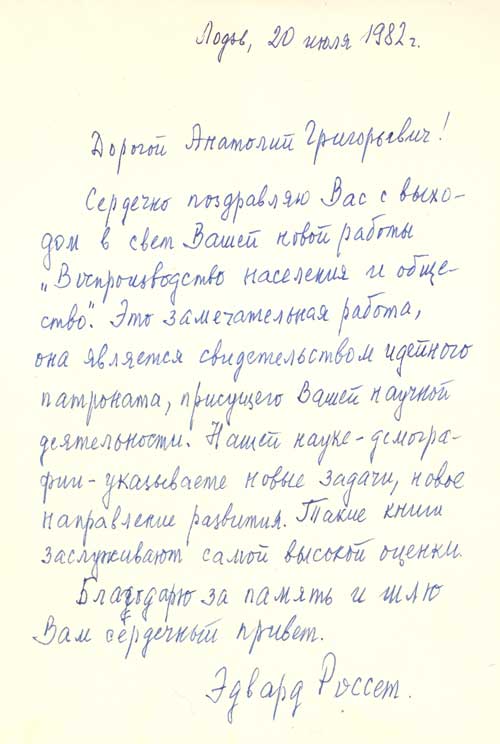 Лодзь, 20 июля 1982 г.
Дорогой Анатолий Григорьевич!
Сердечно поздравляю Вас с выхо-
дом в свет Вашей новой работы
„Воспроизводство населения и обще-
ство". Это замечательная работа,
она является свидетельством идейного
патроната, присущего Вашей научной
деятельности. Нашей науке - демогра-
фии - указываете новые задачи, новое
направление развития. Такие книги
заслуживают самой высокой оценки.
Благодарю за память и шлю
Вам сердечный привет.
Эдвард Россет.